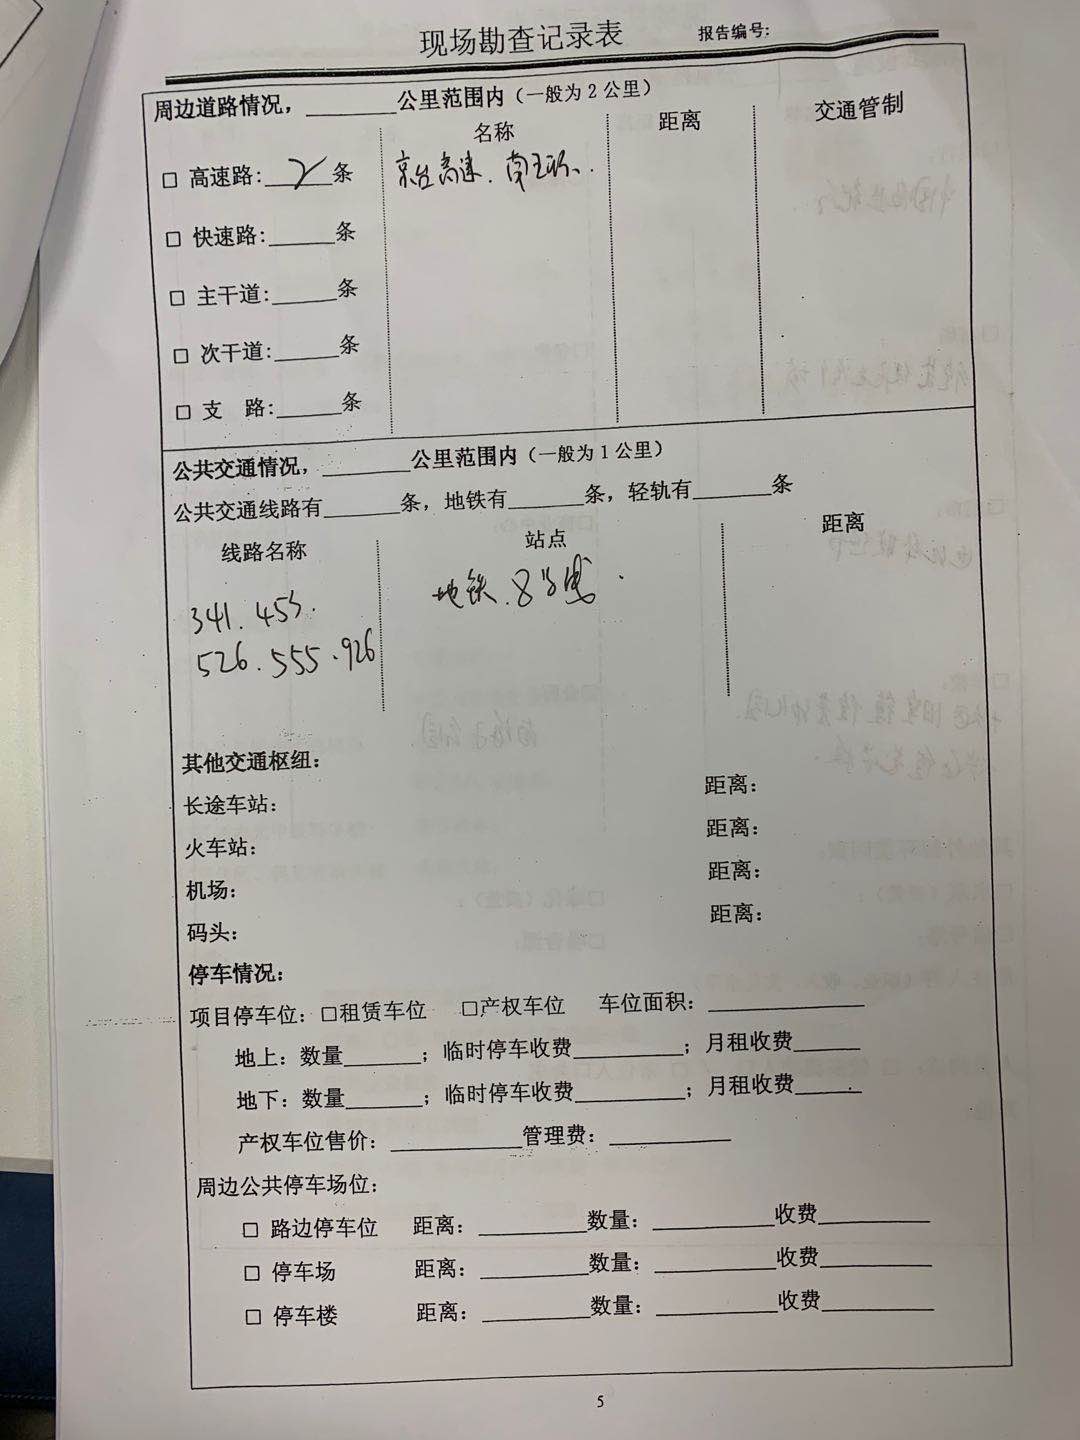 现场勘查记录表 报告编号:
周边道路情况，______公里范围内（一般为2公里）
名称 距离 交通管制
□ 高速路:2条 京台高速、南五环、
□ 快速路:______条
□ 主干道:______条
□ 次干道:______条
□ 支 路:______条
公共交通情况，______公里范围内（一般为1公里）
公共交通线路有______条，地铁有______条，轻轨有______条
线路名称 站点 距离
341.453. 地铁.8号线.
526.555.926
其他交通枢纽：
长途车站： 距离：
火车站： 距离：
机场： 距离：
码头： 距离：
停车情况：
项目停车位：□租赁车位 □产权车位 车位面积：______
地上：数量______；临时停车收费______；月租收费______
地下：数量______；临时停车收费______；月租收费______
产权车位售价：______管理费：______
周边公共停车场位：
□ 路边停车位 距离：______数量：______收费______
□ 停车场 距离：______数量：______收费______
□ 停车楼 距离：______数量：______收费______
5